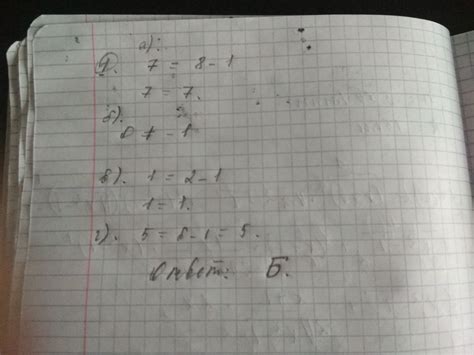 а):
1. 7 = 8 - 1
7 = 7.
б).
1 - 1
в). 1 = 2 - 1
1 = 1.
г). 5 = 8 - 1 = 5.
Ответ: Б.